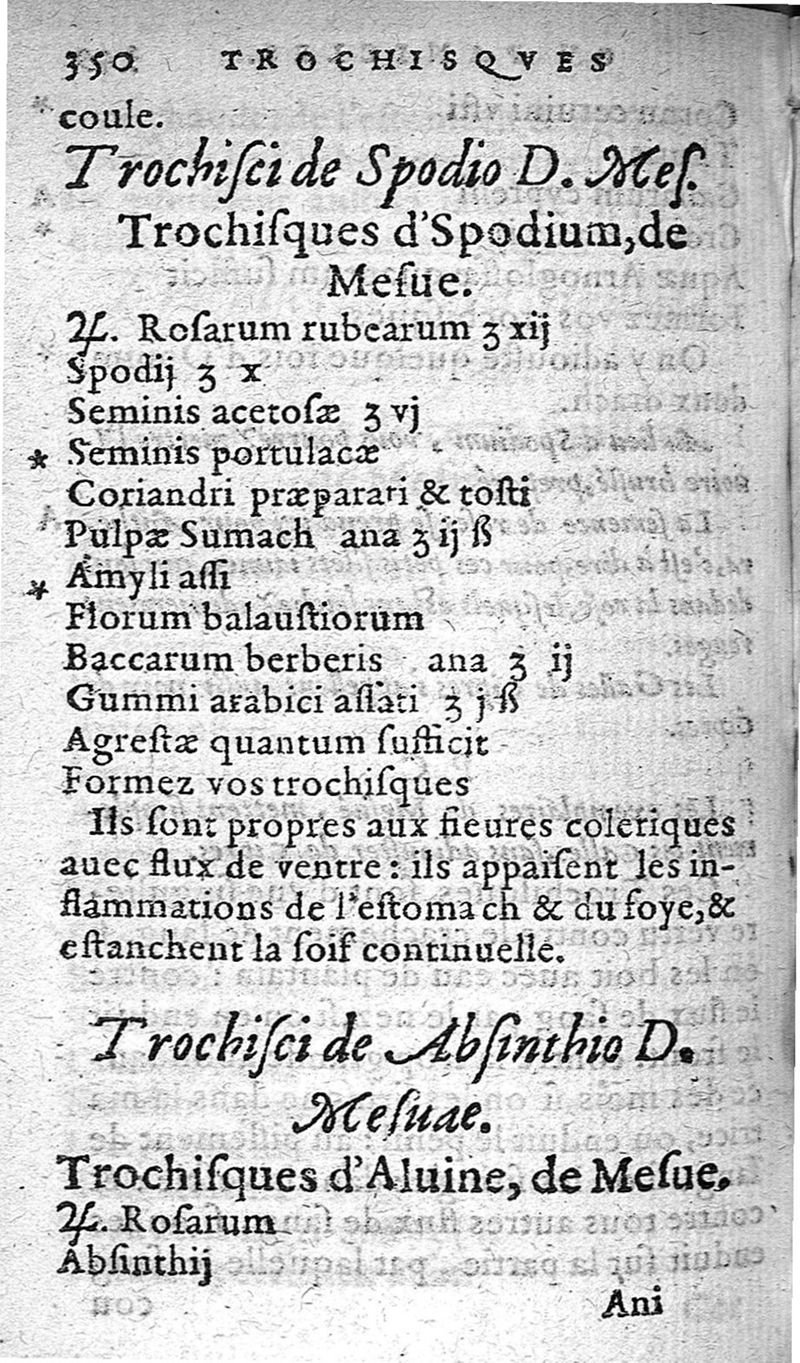 350 TROCHISQVES
coule.
Trochiſci de Spodio D. Meſ.
Trochiſques d'Spodium, de
Meſue.
♃. Roſarum rubearum ʒ xij
Spodij ʒ x
Seminis acetoſæ ʒ vj
* Seminis portulacæ
Coriandri præparati & toſti
Pulpæ Sumach ana ʒ ij ß
* Amyli aſſi
Florum balauſtiorum
Baccarum berberis ana ʒ ij
Gummi arabici aſſati ʒ j ß
Agreſtæ quantum ſufficit
Formez vos trochiſques
Ils ſont propres aux fieures coleriques
auec flux de ventre : ils appaiſent les in-
flammations de l'eſtomach & du foye, &
eſtanchent la ſoif continuelle.
Trochiſci de Abſinthio D.
Meſuae.
Trochiſques d'Aluine, de Meſue.
♃. Roſarum
Abſinthij
Ani